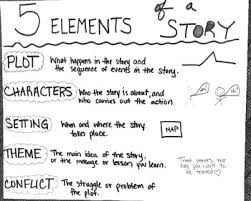 5 ELEMENTS of a STORY
PLOT: What happens in the story and
the sequence of events in the story.
CHARACTERS: Who the story is about, and
who carries out the action
SETTING When and where the story
takes place.
MAP
THEME: The main idea of the story,
or the message or lesson you learn.
Treat others the
way you want to
be treated
CONFLICT: The struggle or problem of
the plot.